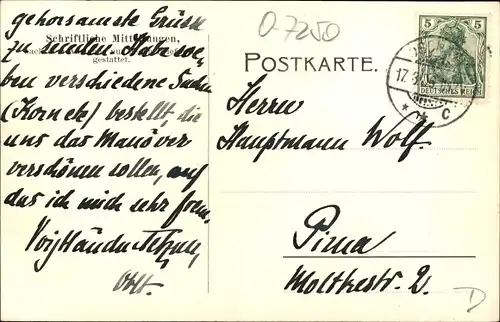 gehorsamste Grüße
zu senden. Habe so-
eben verschiedene Sachen
bestellt, die
uns das Manöver
verschönen sollen, auf
das ich mich sehr freue.
Schriftliche Mitteilungen,
gestattet.
O-7250
POSTKARTE.
5 5
DEUTSCHES REICH
17.
* * C
Herrn
Hauptmann Wolf.
Pirna
Moltkestr. 2.